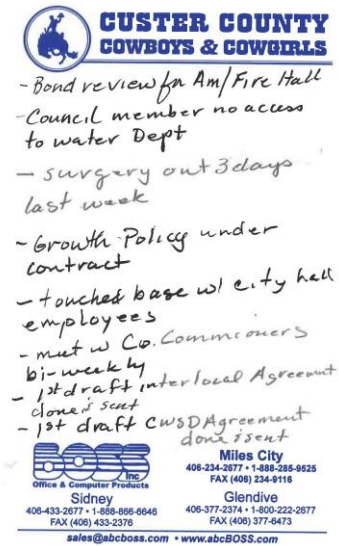 CUSTER COUNTY
COWBOYS & COWGIRLS
- Bond review for Am/Fire Hall
- Council member no access
to water Dept
- surgery out 3 days
last week
- Growth Policy under
contract
- touched base w/ city hall
employees
- met w Co. Commcioners
bi-weekly
- 1st draft interlocal Agreement
done & sent
- 1st draft CWSD Agreement
done & sent
BOSS Inc
Office & Computer Products
Sidney
406-433-2677 • 1-888-866-6646
FAX (406) 433-2376
Miles City
406-234-2677 • 1-888-285-9525
FAX (406) 234-9116
Glendive
406-377-2374 • 1-800-222-2677
FAX (406) 377-6473
sales@abcboss.com • www.abcBOSS.com